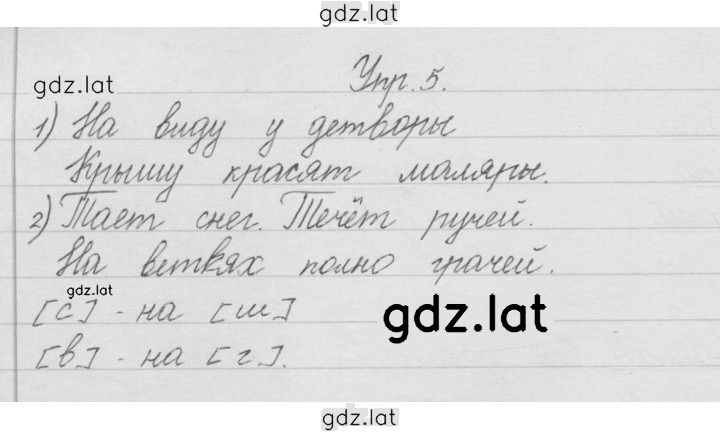 gdz.lat
Упр. 5.
gdz.lat
1) На виду у детворы
Крышу красят маляры.
2) Тает снег. Течёт ручей.
На ветвях полно грачей.
gdz.lat
[с] - на [ш]
gdz.lat
[в] - на [г].
gdz.lat